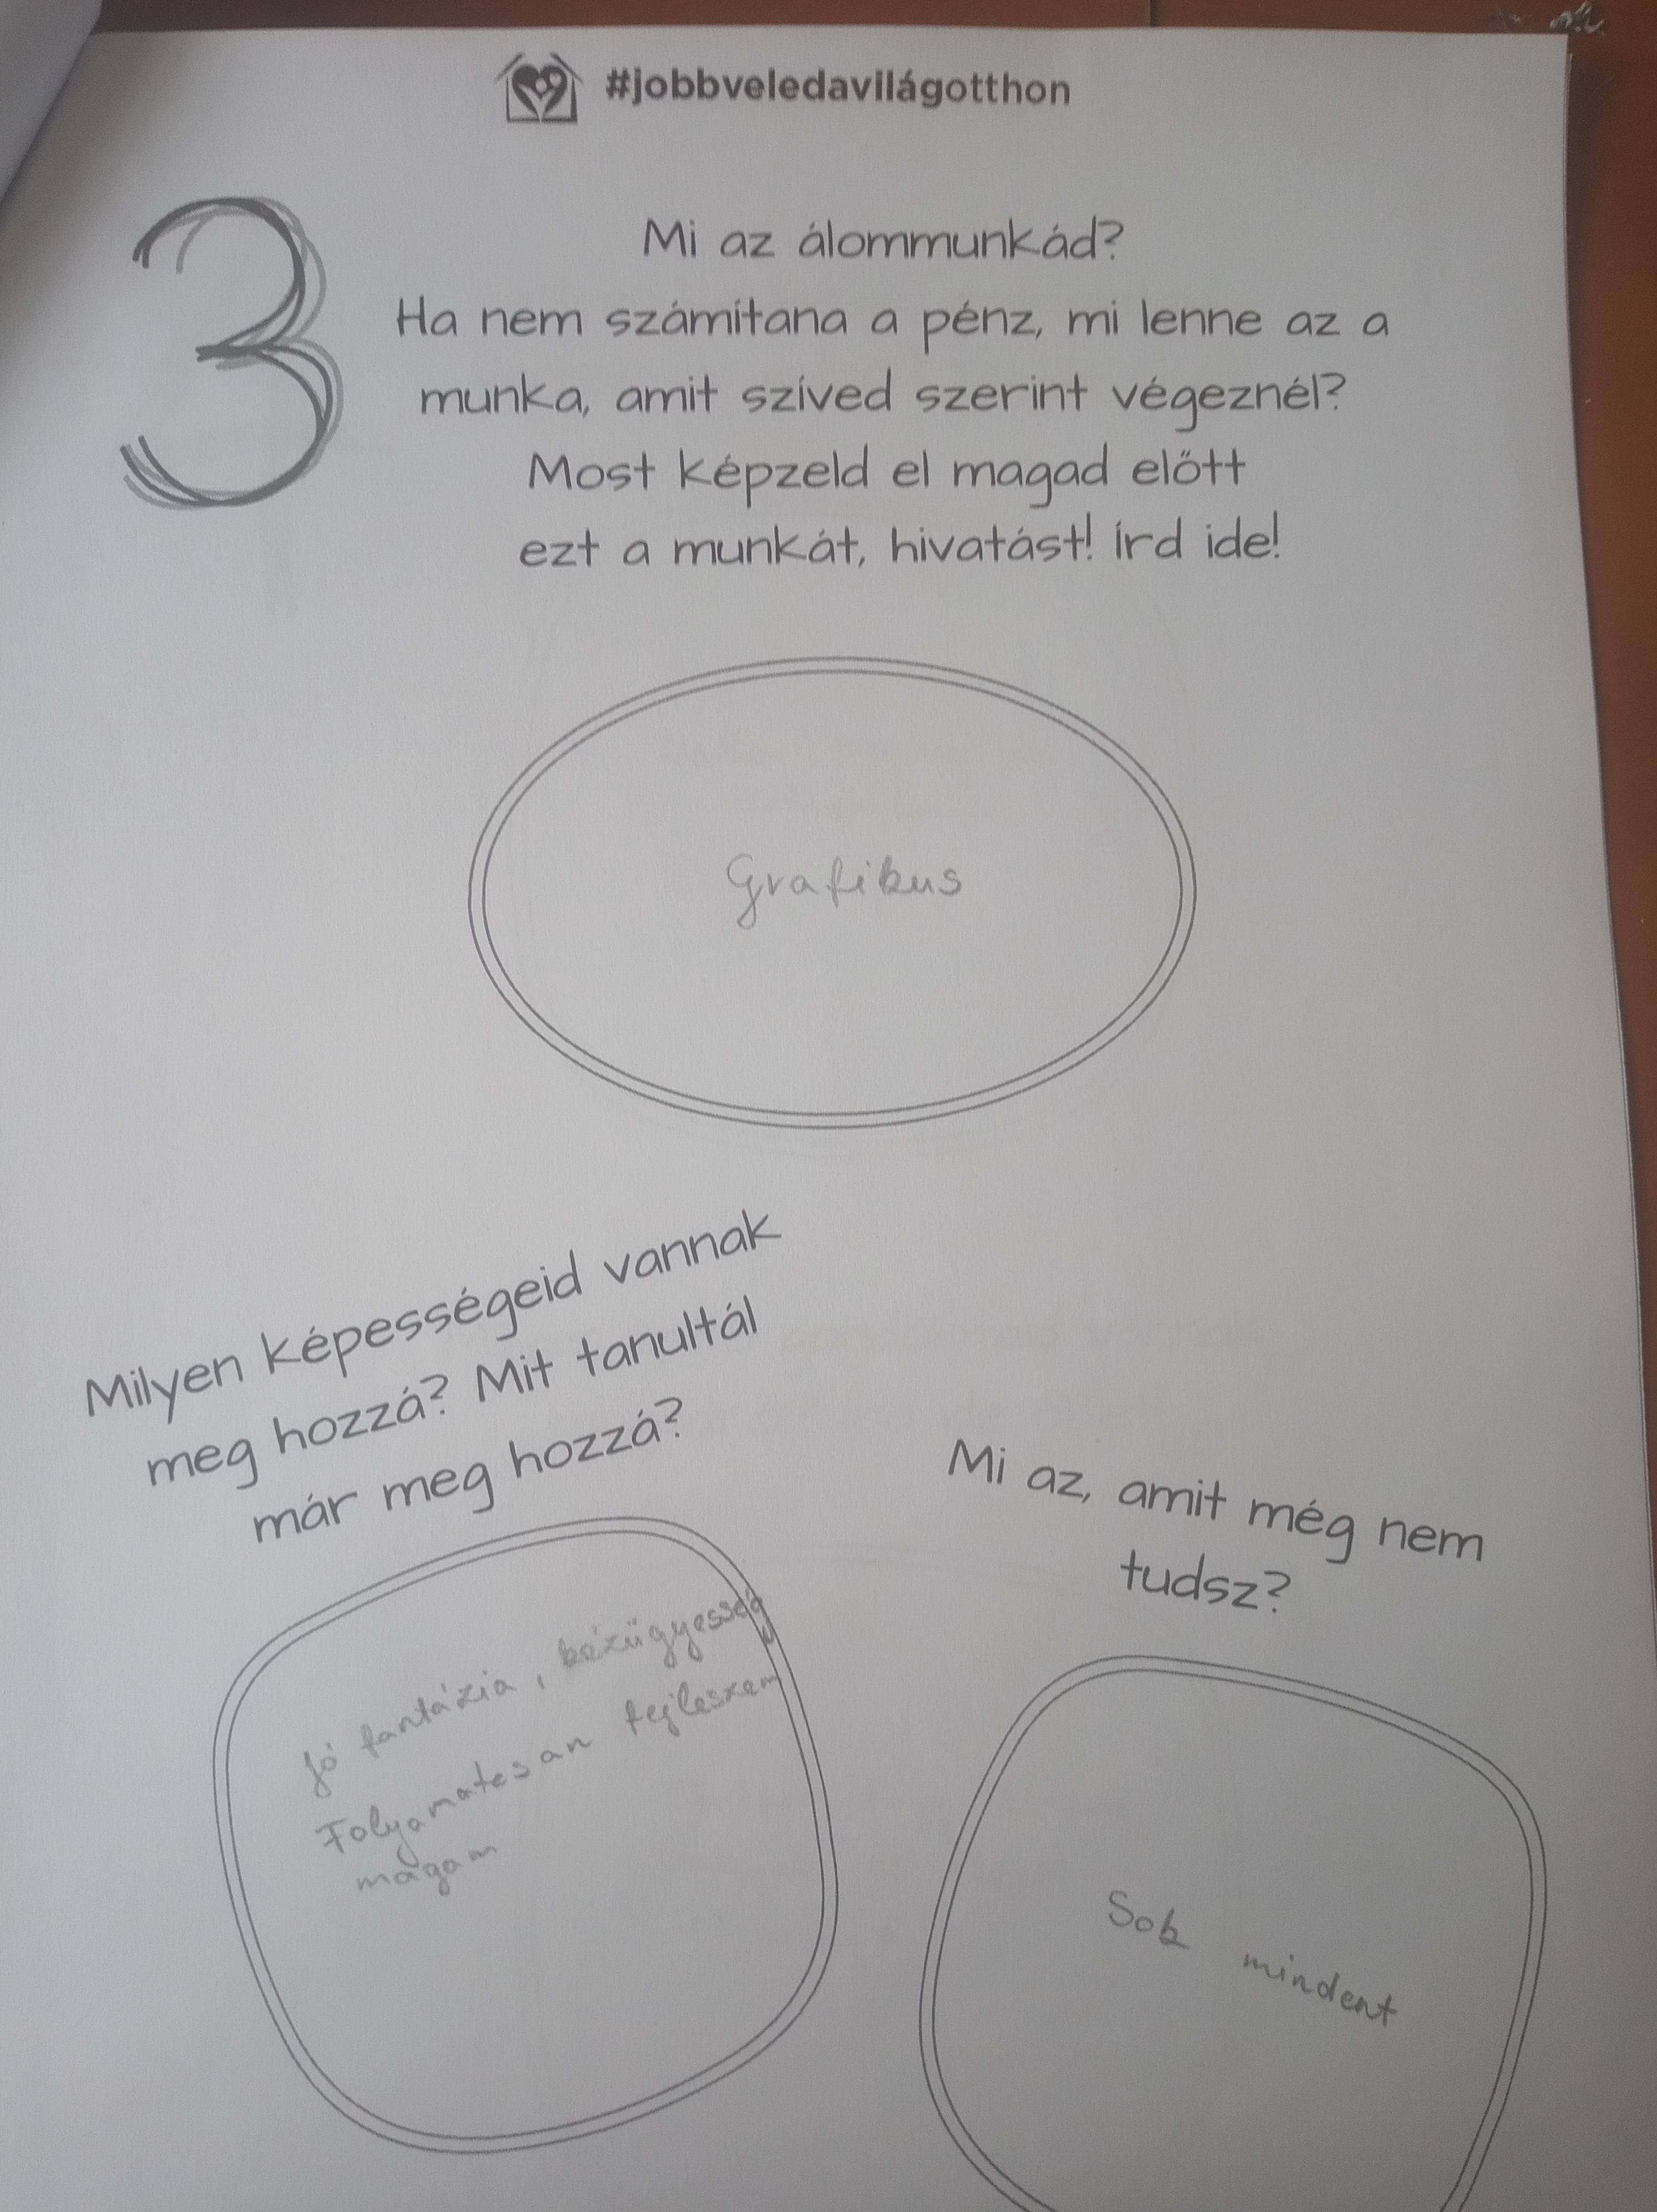 #jobbveledavilágotthon
3
Mi az álommunkád?
Ha nem számítana a pénz, mi lenne az a
munka, amit szíved szerint végeznél?
Most képzeld el magad előtt
ezt a munkát, hivatást! írd ide!
Grafikus
Milyen képességeid vannak
meg hozzá? Mit tanultál
már meg hozzá?
Jó fantázia, kézügyesség
Folyamatosan fejleszem
magam
Mi az, amit még nem
tudsz?
Sok mindent